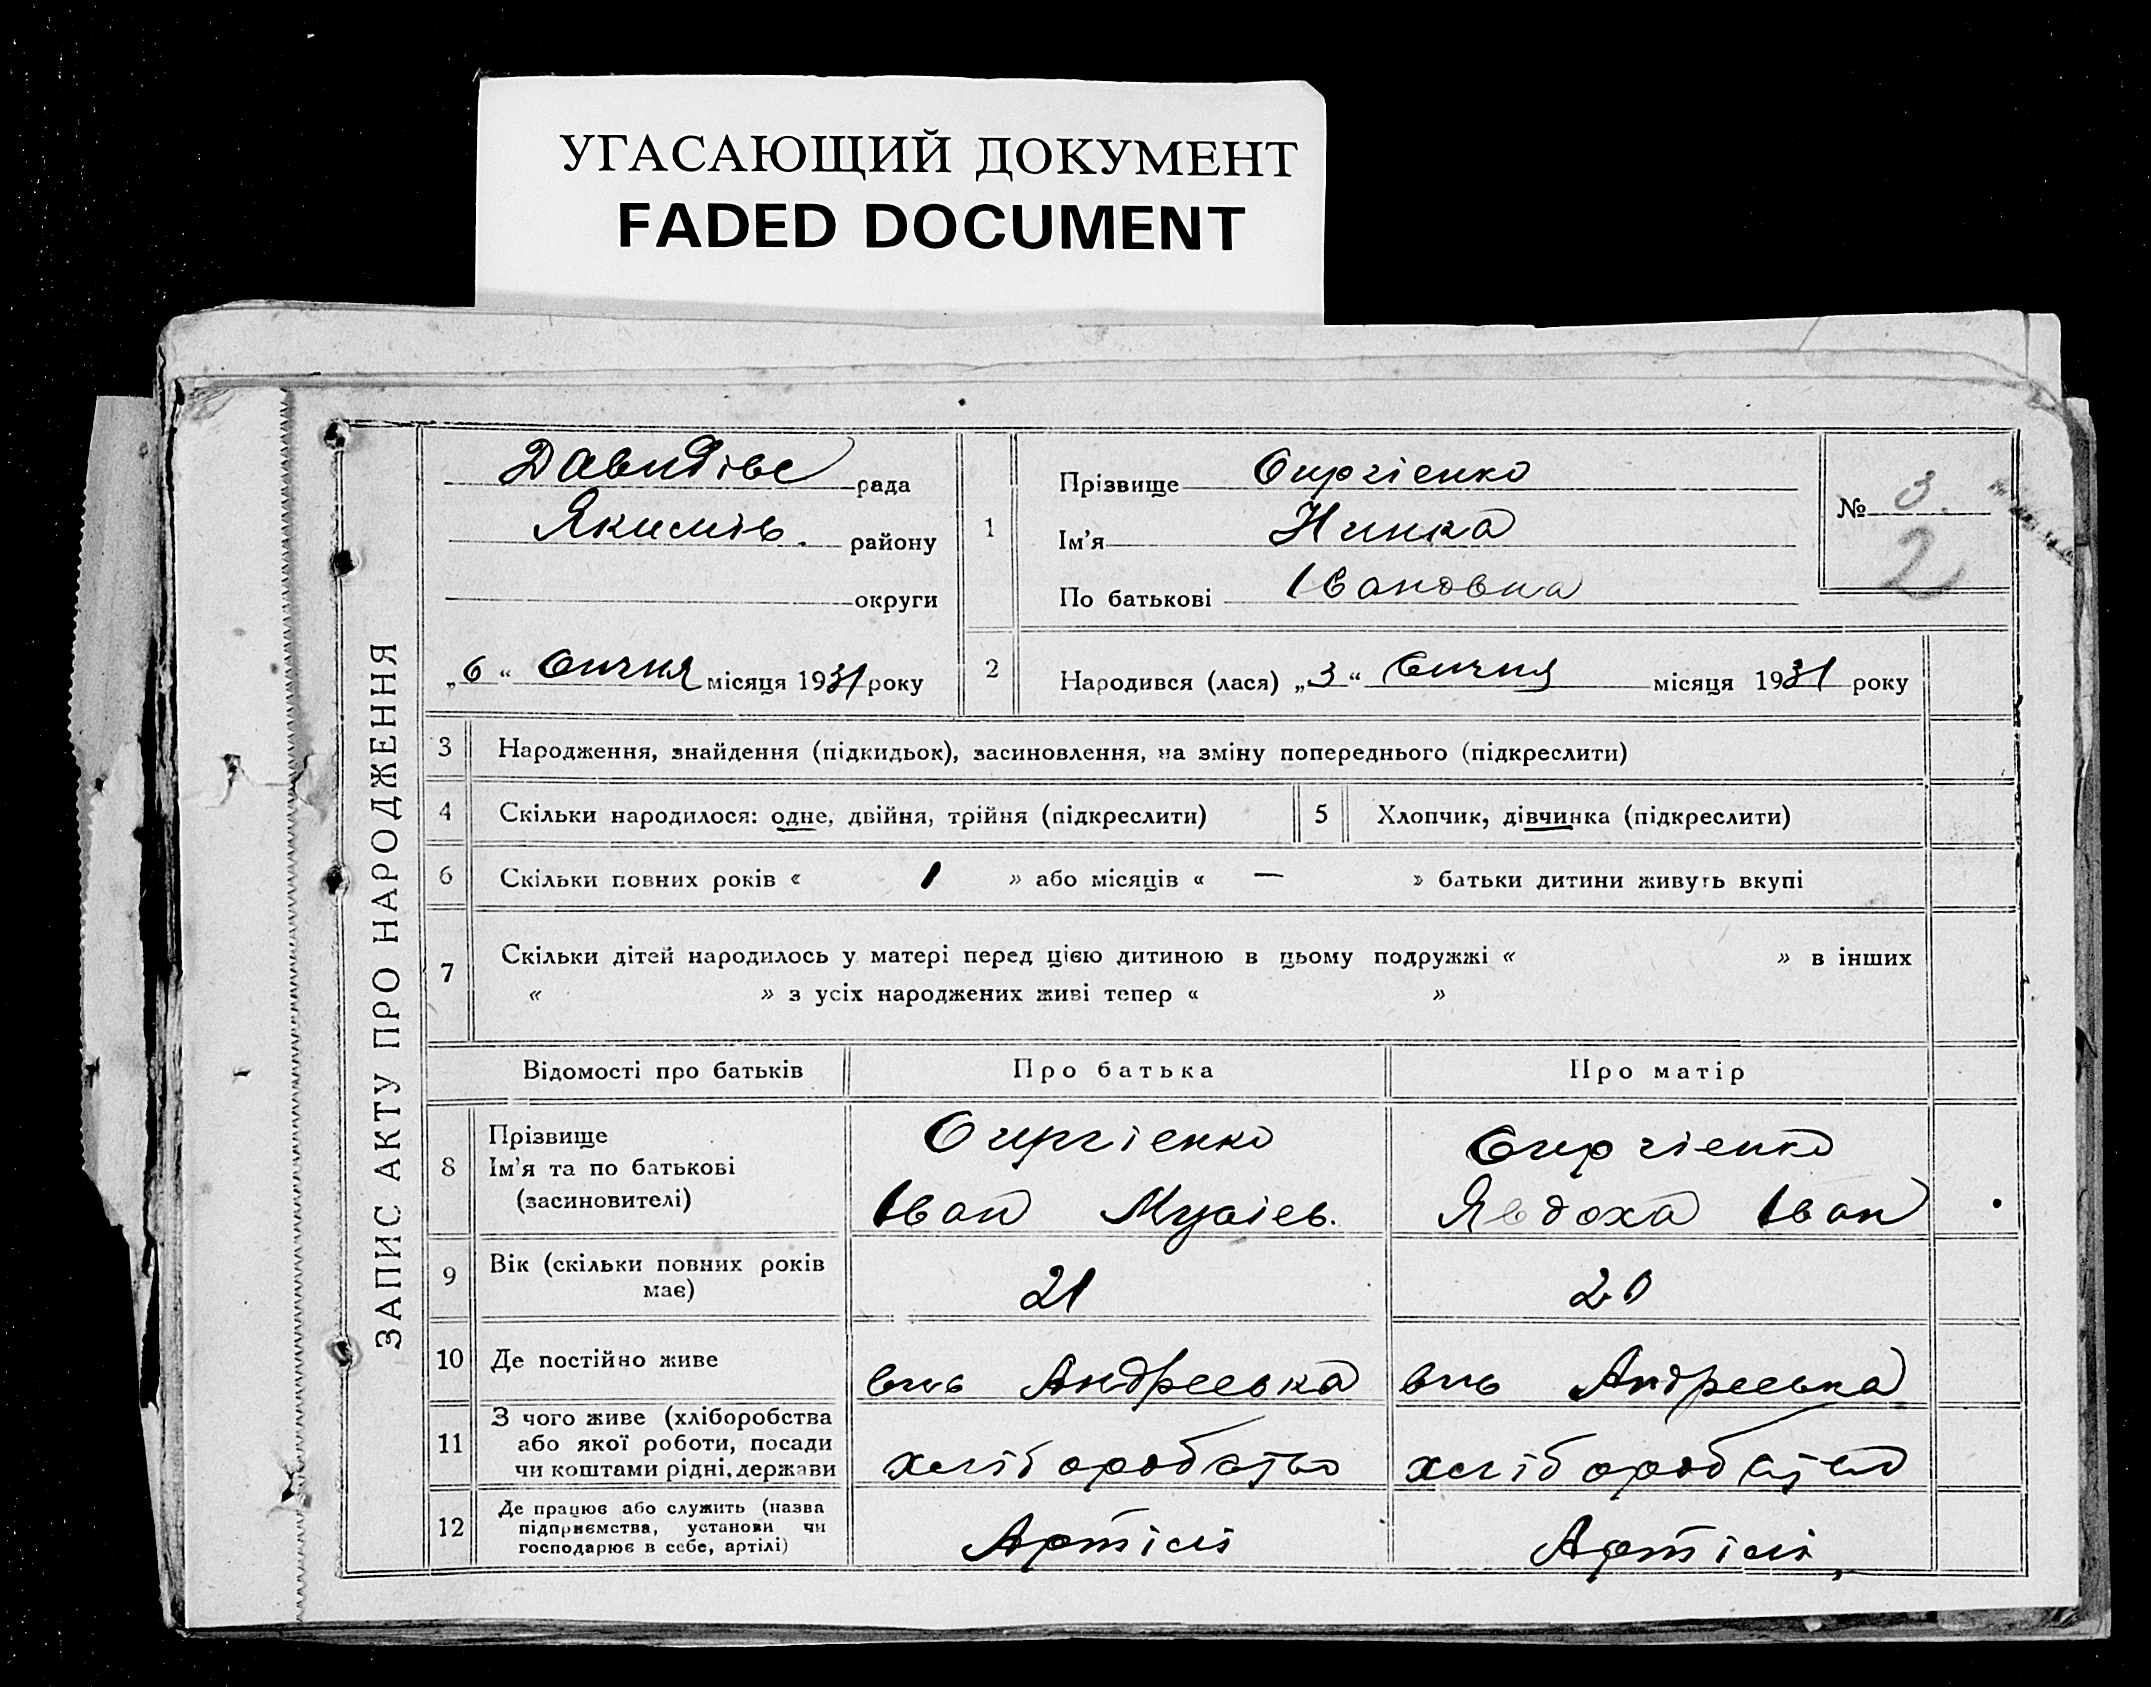 УГАСАЮЩИЙ ДОКУМЕНТ
FADED DOCUMENT
ЗАПИС АКТУ ПРО НАРОДЖЕННЯ
Давидівс рада
Якимів. району
округи
„6“ Січня місяця 1931 року
1
Прізвище Сиргіенко
Ім'я Нинка
По батькові Івановна
№ 3.
2
2 Народився (лася) „3“ Січня місяця 1931 року
3 Народження, знайдення (підкидьок), засиновлення, на зміну попереднього (підкреслити)
4 Скільки народилося: одне, двійня, трійня (підкреслити) 5 Хлопчик, дівчинка (підкреслити)
6 Скільки повних років « 1 » або місяців « — » батьки дитини живуть вкупі
7 Скільки дітей народилось у матері перед цією дитиною в цьому подружжі « » в інших
« » з усіх народжених живі тепер « »
Відомості про батьків Про батька Про матір
8 Прізвище
Ім'я та по батькові
(засиновителі)
Сиргіенко
Іван
Сиргіенко
Явдоха Іван
9 Вік (скільки повних років
має)
21 20
10 Де постійно живе Андреевка Андреевка
11 З чого живе (хліборобства
або якої роботи, посади
чи коштами рідні, держави
хліборобство хліборобство
12 Де працює або служить (назва
підприємства, установи чи
господарює в себе, артілі)
Артілі Артілі